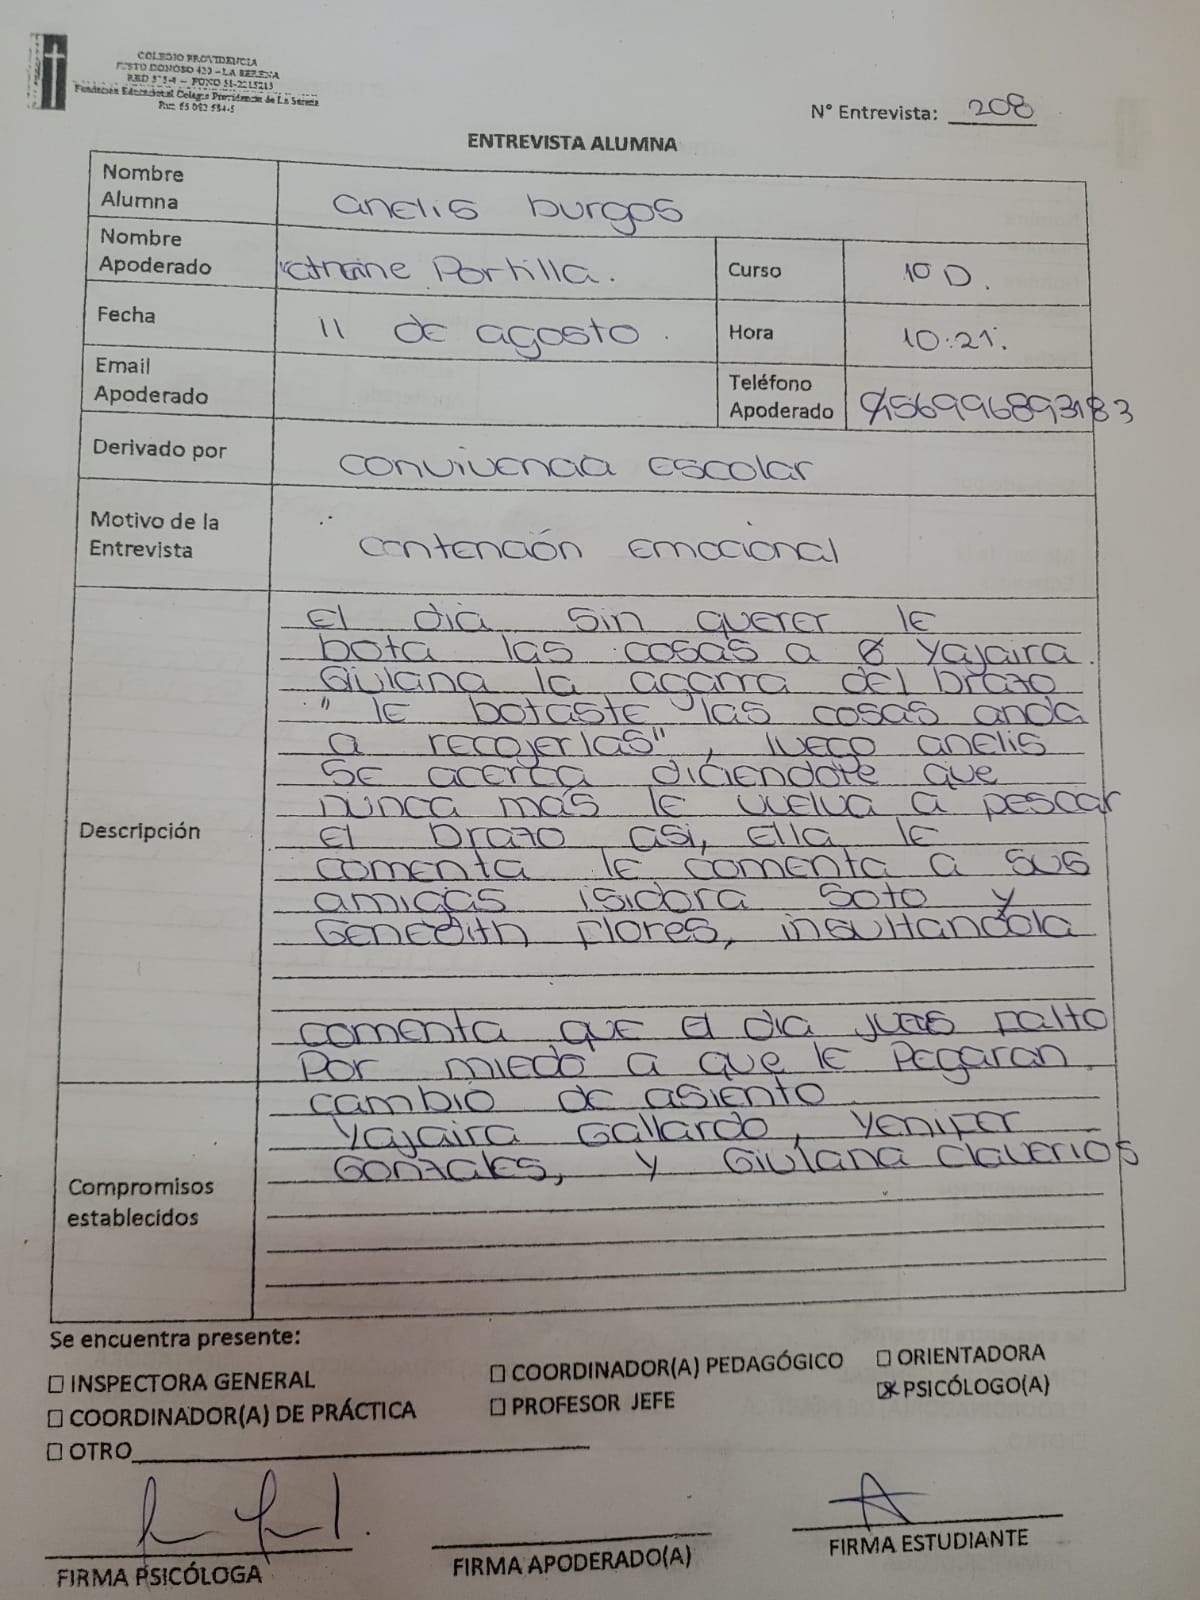 COLEGIO PROVIDENCIA
JUSTO DONOSO 420 - LA SERENA
Fundación Educacional Colegio Providencia de La Serena
N° Entrevista: 208
ENTREVISTA ALUMNA
Nombre Alumna anelis burgos
Nombre Apoderado Portilla. Curso 1º D.
Fecha 11 de agosto. Hora 10:21.
Email Apoderado Teléfono Apoderado 56996893183
Derivado por convivencia Escolar
Motivo de la Entrevista contención Emocional
Descripción
El dia sin querer le
bota las cosas a Yajaira.
Giuliana la agarra del brazo
" le botaste las cosas anda
a recojerlas", luego anelis
se acerca diciendote que
nunca mas le vuelva a pescar
el brazo asi, Ella le
comenta le comenta a sus
amigas isidora Soto y
Genedith Flores, insultandola
comenta que el dia jueves falto
Por miedo a que le Pegaran.
Compromisos establecidos
cambio de asiento
Yajaira Gallardo, Yenifer
Gonzales, y Giulana Claverios
Se encuentra presente:
☐ INSPECTORA GENERAL ☐ COORDINADOR(A) PEDAGÓGICO ☐ ORIENTADORA
☐ COORDINADOR(A) DE PRÁCTICA ☐ PROFESOR JEFE ☒ PSICÓLOGO(A)
☐ OTRO
FIRMA PSICÓLOGA FIRMA APODERADO(A) FIRMA ESTUDIANTE